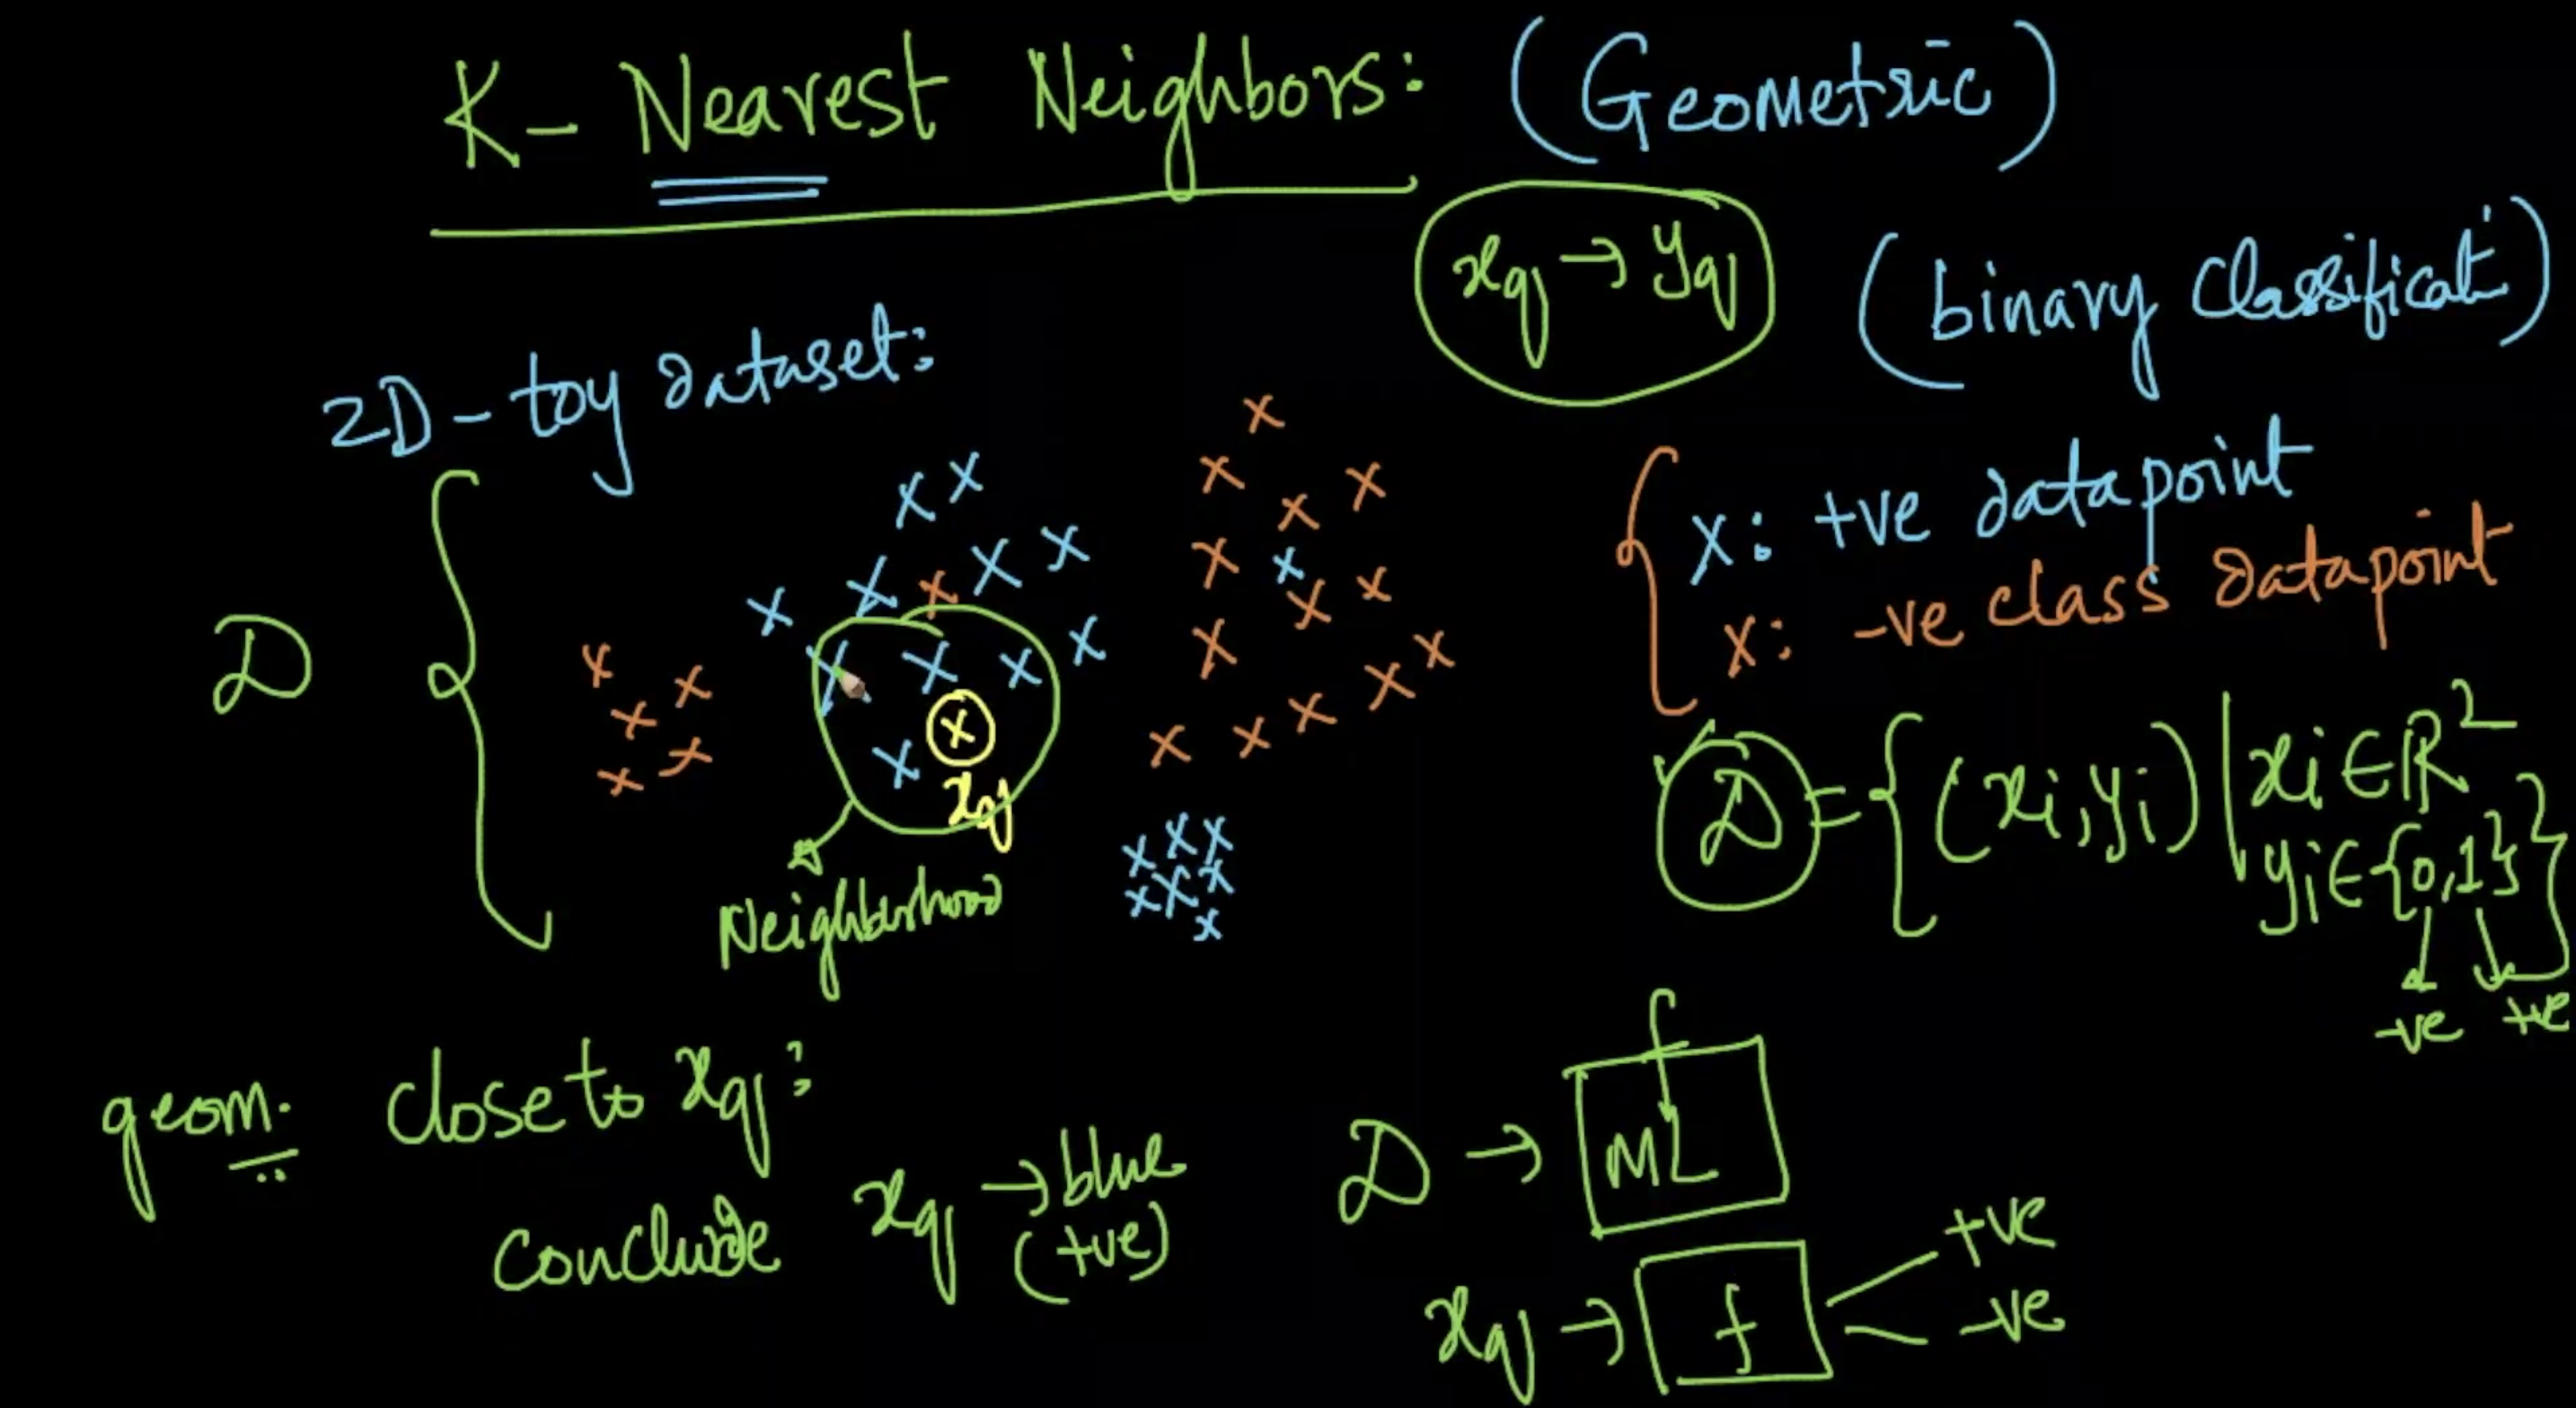 K- Nearest Neighbors: (Geometric)
xq → yq (binary classificat)
2D-toy dataset:
x: +ve datapoint
x: -ve class datapoint
D
xq
D = {(xi, yi) | xi ∈ R² yi ∈ {0,1}}
-ve +ve
Neighborhood
geom. close to xq:
conclude xq → blue (+ve)
f
D → ML
xq → f +ve -ve